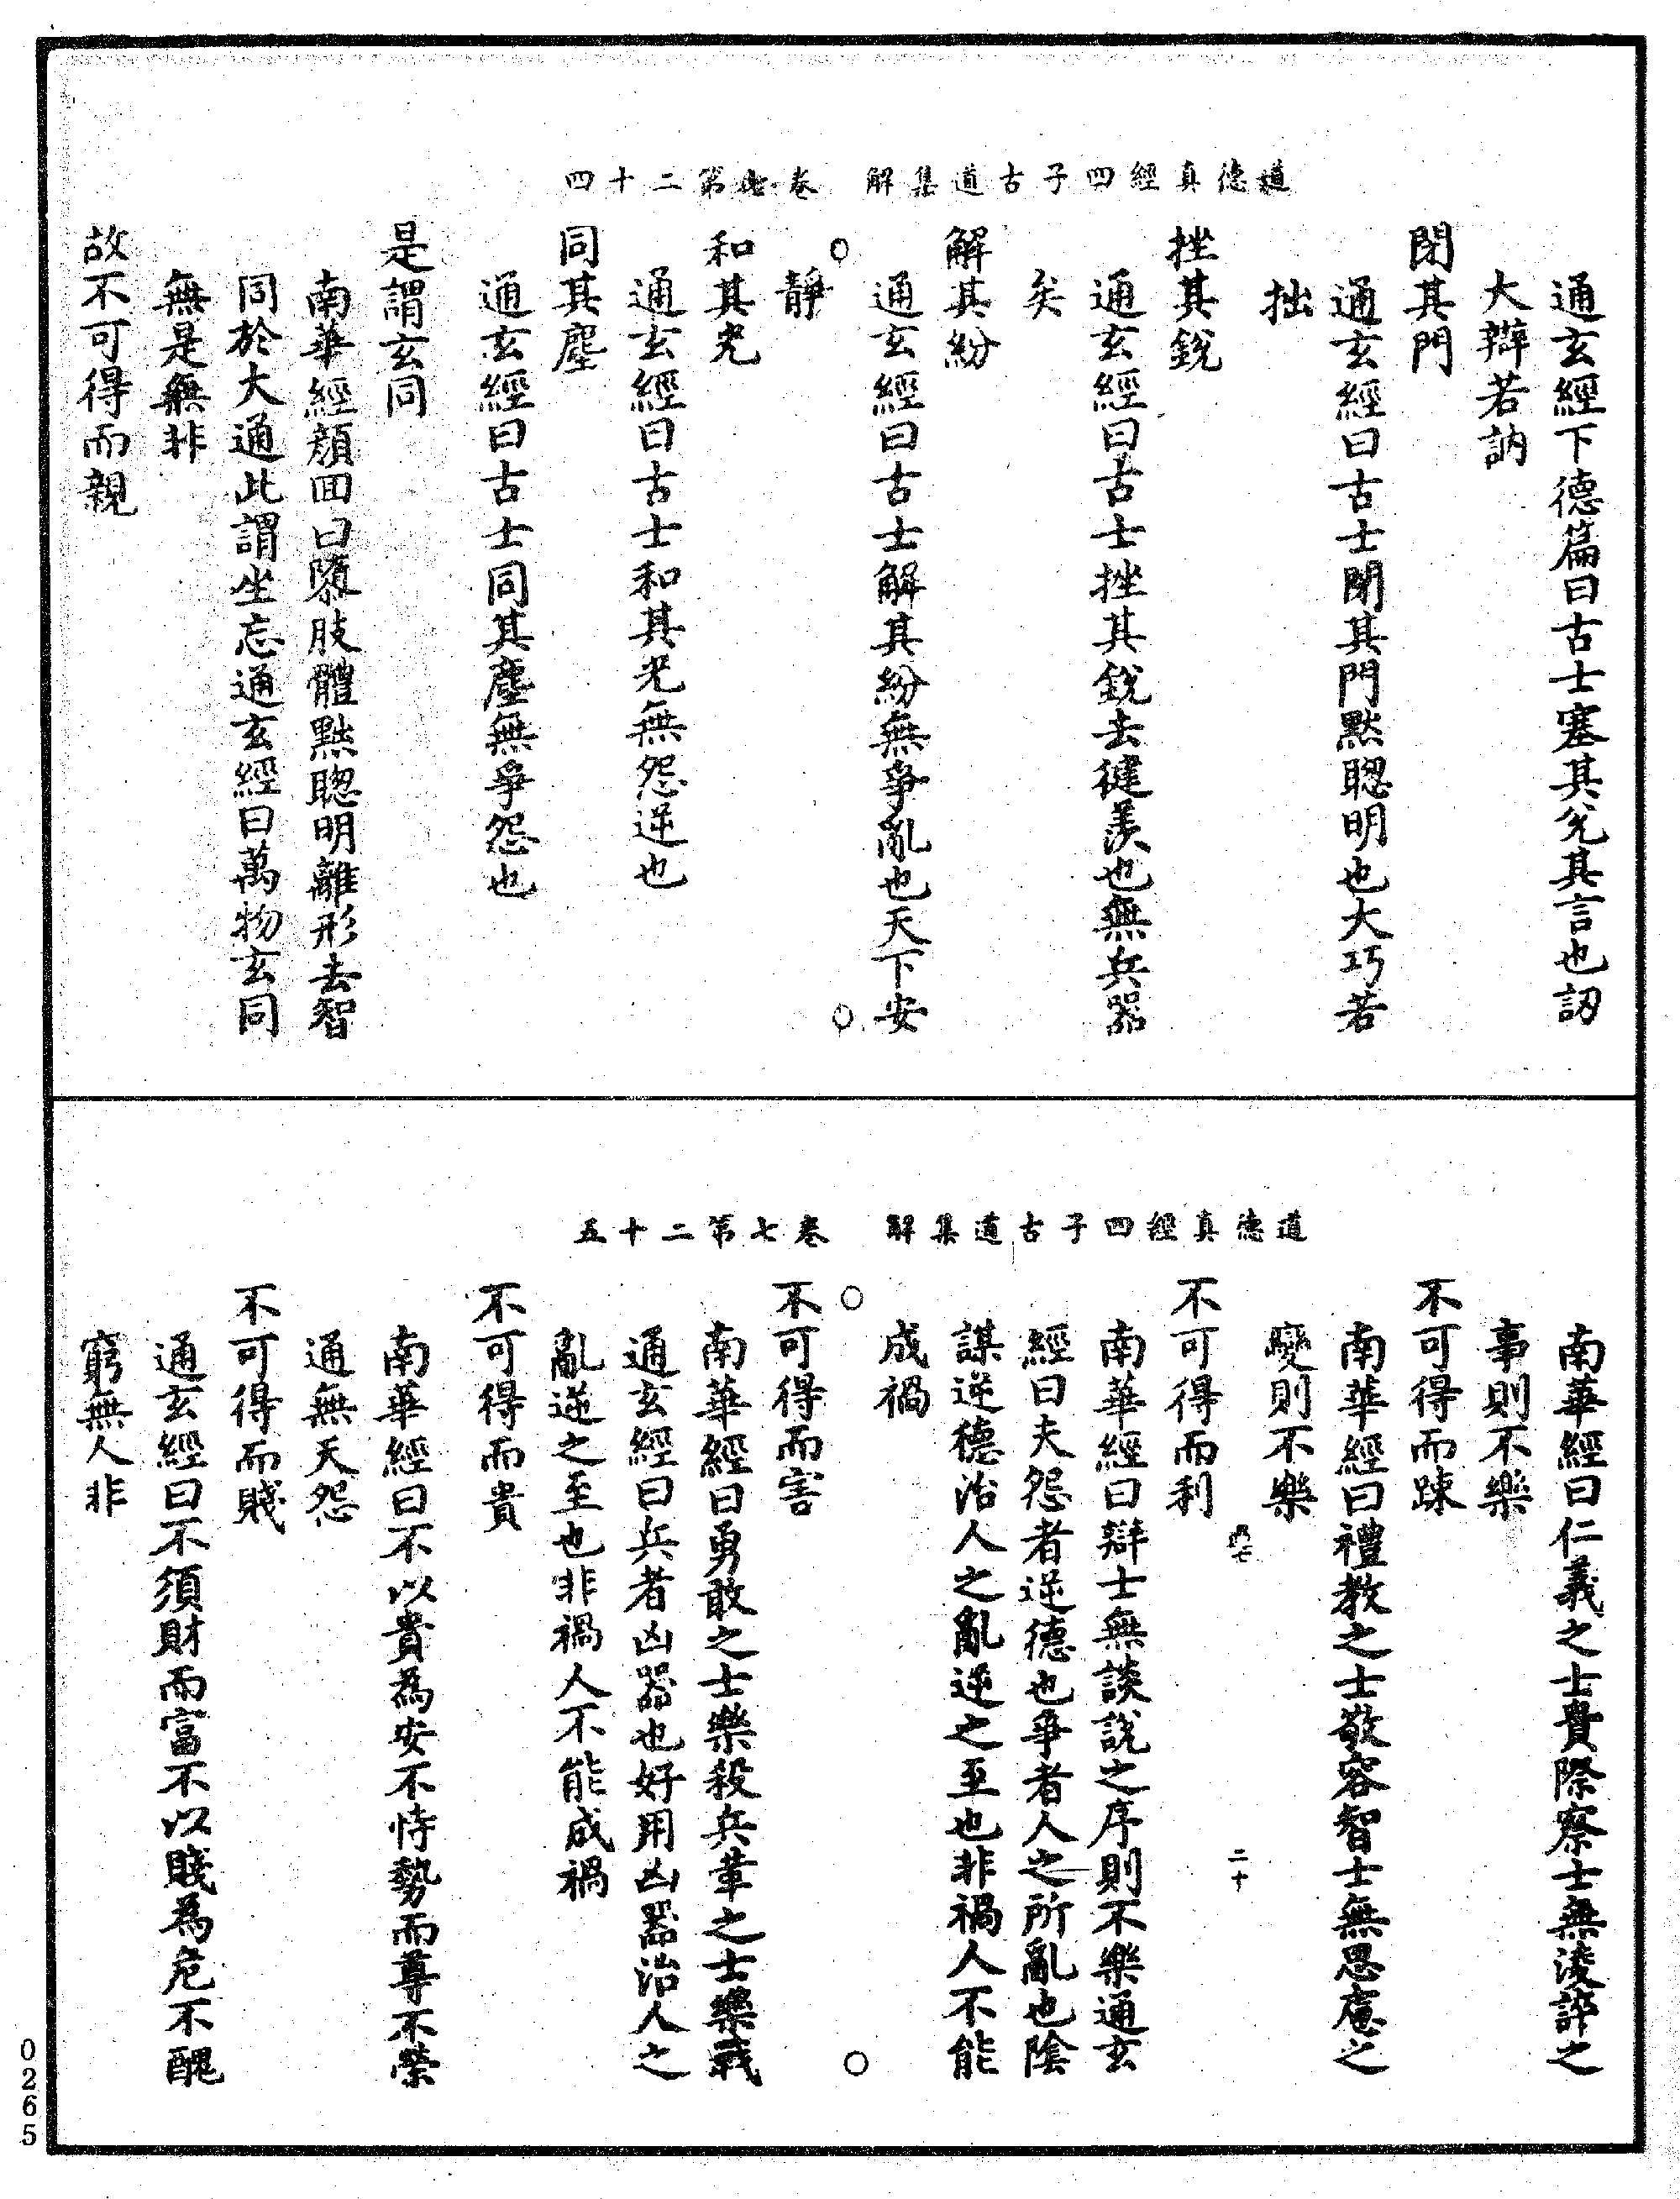 道德真經四子古道集解　卷七第二十四
通玄經下德篇曰古士塞其兊其言也訒
大辯若訥
閉其門
通玄經曰古士閉其門黙聦明也大巧若
拙
挫其銳
通玄經曰古士挫其銳去健羨也無兵器
矣
解其紛
通玄經曰古士解其紛無爭亂也天下安
靜
和其光
通玄經曰古士和其光無怨逆也
同其塵
通玄經曰古士同其塵無爭怨也
是謂玄同
南華經顔回曰隳肢體黙聦明離形去智
同於大通此謂坐忘通玄經曰萬物玄同
無是無非
故不可得而親
道德真經四子古道集解　卷七第二十五
南華經曰仁義之士貴際察士無淩誶之
事則不樂
不可得而踈
南華經曰禮教之士敬容智士無思慮之
變則不樂
不可得而利
二十
南華經曰辯士無談說之序則不樂通玄
經曰夫怨者逆德也爭者人之所亂也陰
謀逆德治人之亂逆之至也非禍人不能
成禍
不可得而害
南華經曰勇敢之士樂殺兵革之士樂戰
通玄經曰兵者凶器也好用凶器治人之
亂逆之至也非禍人不能成禍
不可得而貴
南華經曰不以貴為安不恃勢而尊不榮
通無天怨
不可得而賤
通玄經曰不須財而富不以賤為危不醜
窮無人非
0265